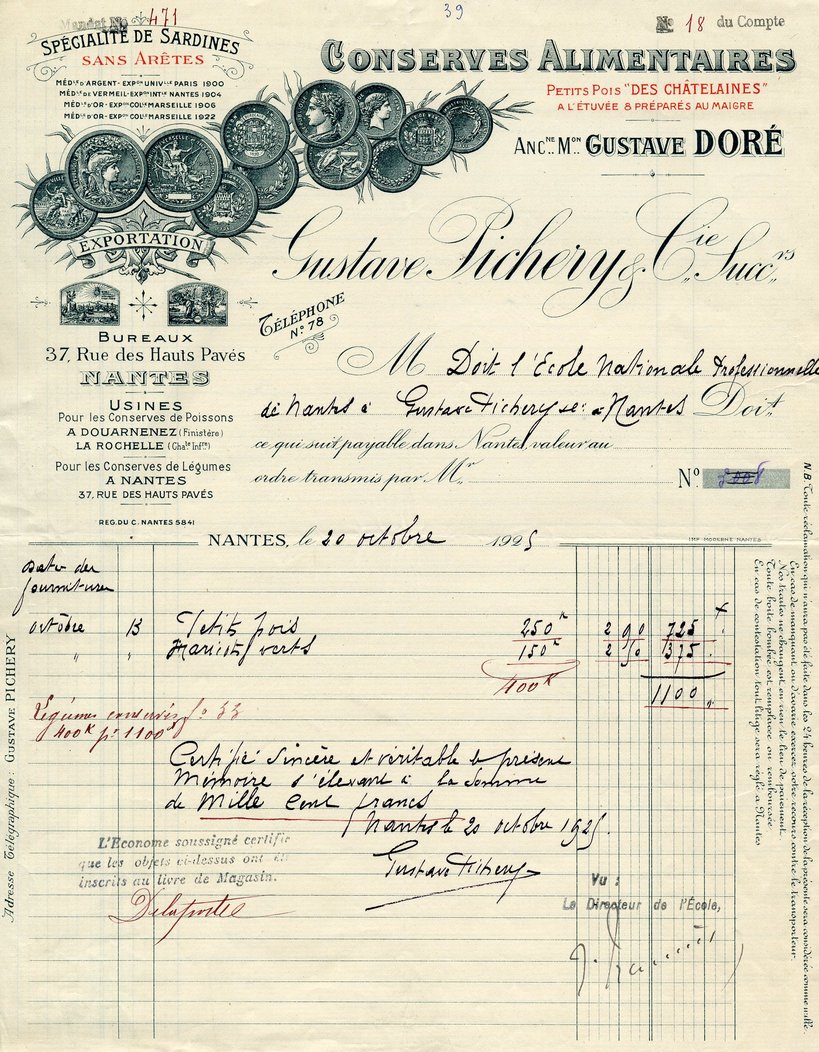 Mandat No 471
39
No 18 du Compte
SPÉCIALITÉ DE SARDINES
SANS ARÊTES
MÉDLE D'ARGENT - EXPON UNIVLLE PARIS 1900
MÉDLE DE VERMEIL - EXPON INTLE NANTES 1904
MÉDLE D'OR - EXPON COLLE MARSEILLE 1906
MÉDLE D'OR - EXPON COLLE MARSEILLE 1922
CONSERVES ALIMENTAIRES
PETITS POIS "DES CHÂTELAINES"
A L'ÉTUVÉE & PRÉPARÉS AU MAIGRE
ANCNE MON GUSTAVE DORÉ
EXPORTATION
Gustave Pichery & Cie Succrs
TÉLÉPHONE
No 78
BUREAUX
37, Rue des Hauts Pavés
NANTES
USINES
Pour les Conserves de Poissons
A DOUARNENEZ (Finistère)
LA ROCHELLE (Chate Infre)
Pour les Conserves de Légumes
A NANTES
37, RUE DES HAUTS PAVÉS
REG. DU C. NANTES 5841
M Doit l'École Nationale Professionnelle
de Nantes à Gustave Pichery & Cie à Nantes Doit
ce qui suit payable dans Nantes, valeur au
ordre transmis par Mr
No
NANTES, le 20 octobre 1925
IMP MODERNE NANTES
Dates des
fournitures
octobre 13 Petits pois 250k 2 90 725
" " Haricots verts 150k 2 50 375
400k
1100 "
Légumes conservés
400k pr 1100f
Certifié sincère et véritable le présent
Mémoire s'élevant à la somme
de Mille Cent francs
Nantes le 20 octobre 1925.
Gustave Pichery
L'Econome soussigné certifie
que les objets ci-dessus ont été
inscrits au livre de Magasin.
Delaporte
Vu :
Le Directeur de l'École,
Adresse Télégraphique : GUSTAVE PICHERY
N.B. Toute réclamation qui n'aura pas été faite dans les 24 heures de la réception de la présente sera considérée comme nulle.
En cas de manquant ou d'avarie exercer votre recours contre le transporteur.
Nos traites ne changent en rien le lieu de paiement.
Toute boîte bombée est remplacée ou remboursée
En cas de contestation tout litige sera réglé à Nantes